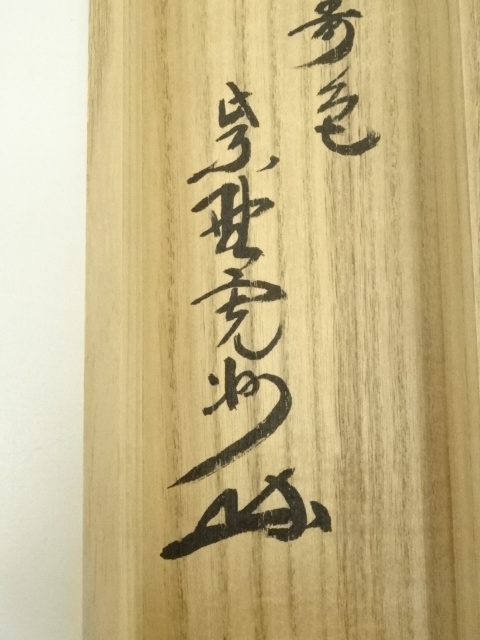 寿色
紫野寛州